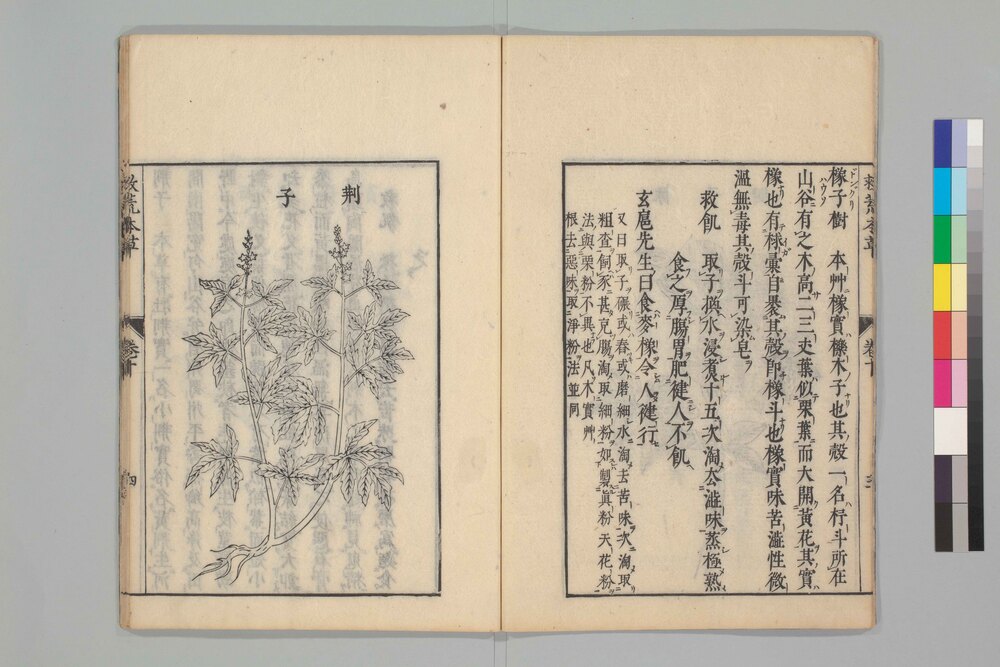 橡子樹 本艸橡實櫟木子也其殼一名杼斗所在
山谷有之木高二三丈葉似栗葉而大開黃花其實
橡也有梂彙自裹其殼即橡斗也橡實味苦澁性微
溫無毒其殼斗可染皂
救飢 取子換水浸煮十五次淘去澁味蒸極熟
食之厚腸胃肥健人不飢
玄扈先生曰食麥橡令人健行
又曰取子碾或舂或磨細水淘去苦味次淘取
粗查飼豕甚充腸淘取細粉如製眞粉天花粉
法與栗粉不異也凡木實艸
根去惡味取淨粉法並同
荆
子
救荒本草
卷十
四